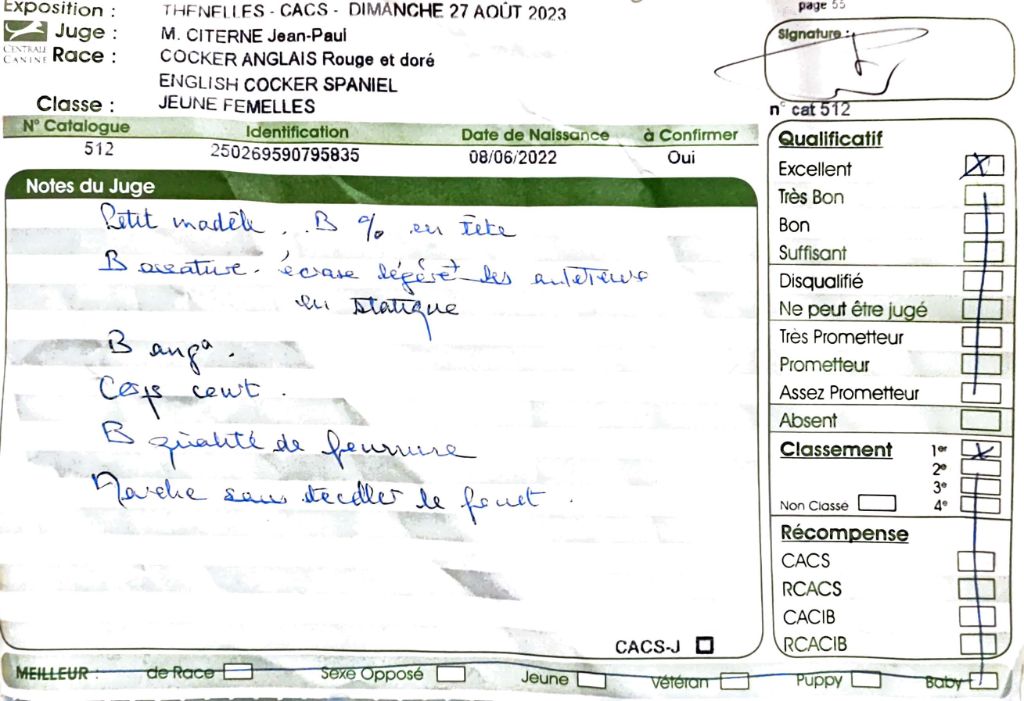 Exposition : THENELLES - CACS - DIMANCHE 27 AOÛT 2023
page 55
CENTRALE CANINE
Juge : M. CITERNE Jean-Paul
Race : COCKER ANGLAIS Rouge et doré
ENGLISH COCKER SPANIEL
Classe : JEUNE FEMELLES
Signature :
n° cat 512
N° Catalogue Identification Date de Naissance à Confirmer
512 250269590795835 08/06/2022 Oui
Notes du Juge
Petit modèle . . B % en tête
B ossature . écrase légèret les antérieurs
en statique
B anga .
Corps court .
B qualité de fourrure
Marche sans décoller le fouet .
CACS-J
Qualificatif
Excellent X
Très Bon
Bon
Suffisant
Disqualifié
Ne peut être jugé
Très Prometteur
Prometteur
Assez Prometteur
Absent
Classement 1er X
2e
3e
Non Classe 4e
Récompense
CACS
RCACS
CACIB
RCACIB
MEILLEUR : de Race Sexe Opposé Jeune Vétéran Puppy Baby